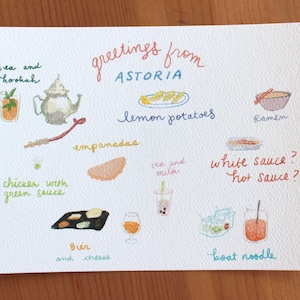 greetings from
ASTORIA
tea and
hookah
lemon potatoes
Ramen
empanadas
tea and
milk
white sauce?
hot sauce?
chicken with
green sauce
Bier
and cheese
boat noodle